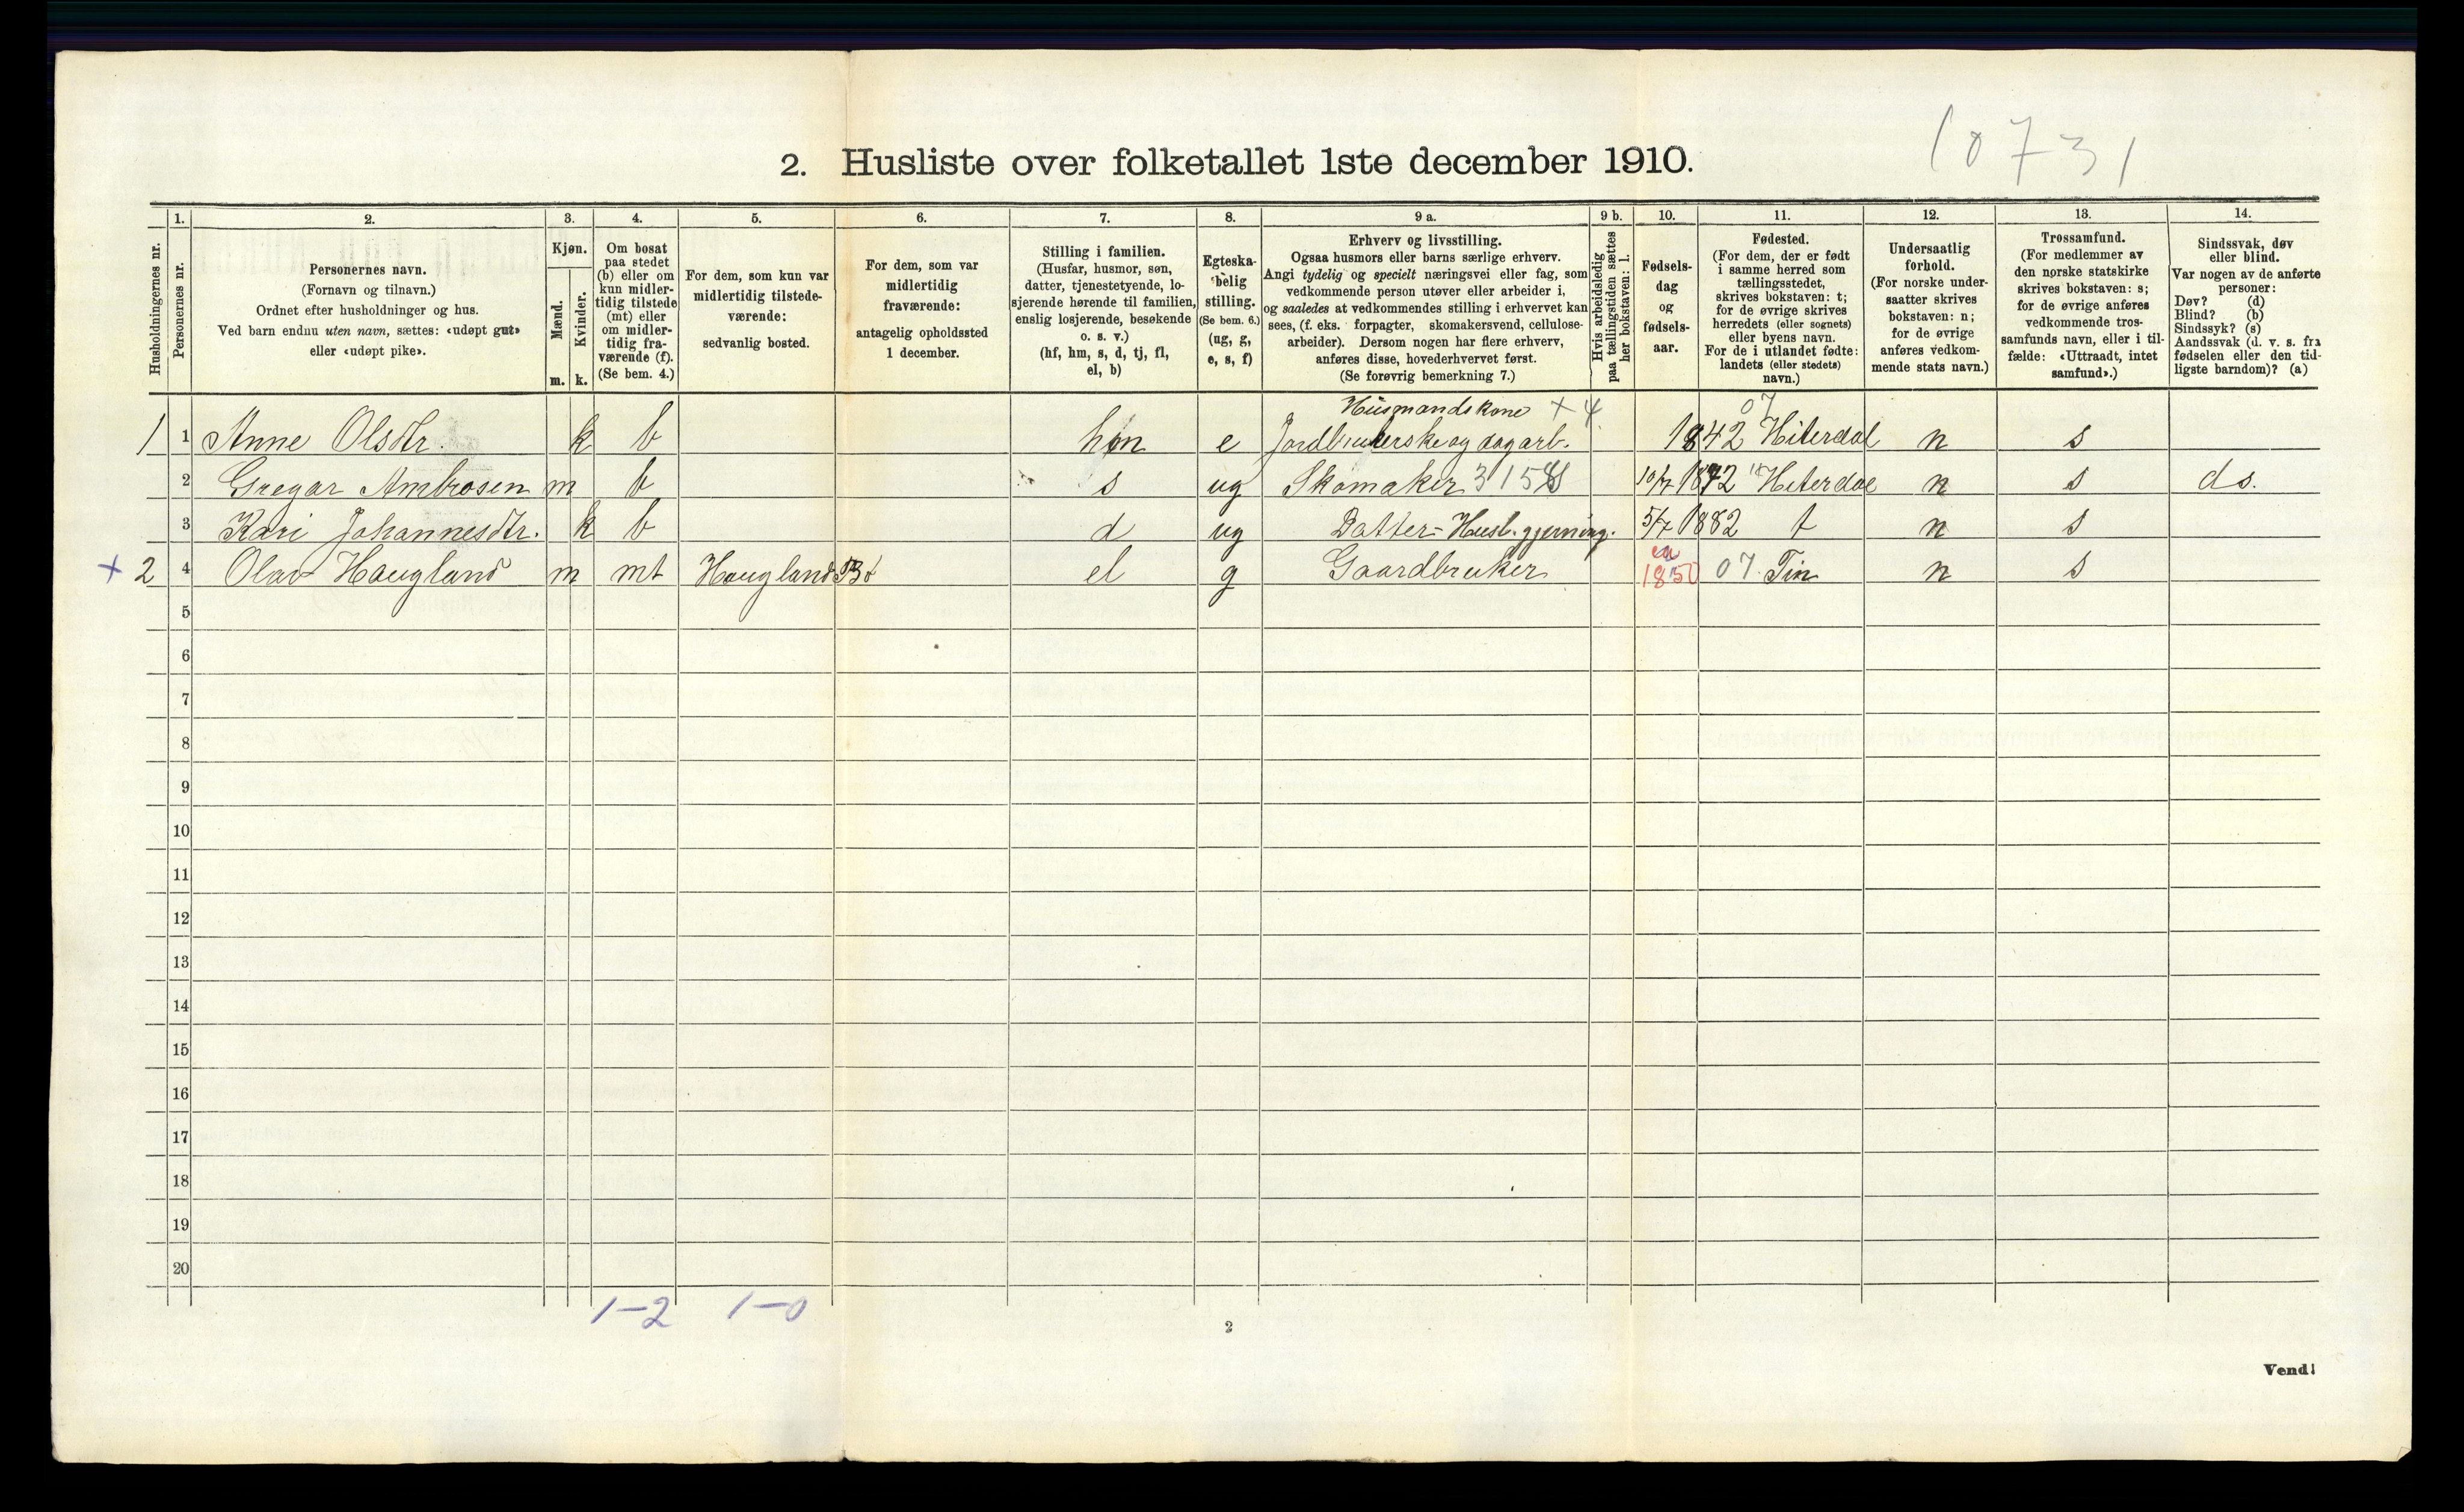 10731
2. Husliste over folketallet 1ste december 1910.
Husholdningernes nr.
1.
Personernes nr.
2.
Personernes navn.
(Fornavn og tilnavn.)
Ordnet efter husholdninger og hus.
Ved barn endnu uten navn, sættes: «udøpt gut»
eller «udøpt pike».
3.
Kjøn.
Mænd.
Kvinder.
m. k.
4.
Om bosat
paa stedet
(b) eller om
kun midler-
tidig tilstede
(mt) eller
om midler-
tidig fra-
værende (f).
(Se bem. 4.)
5.
For dem, som kun var
midlertidig tilstede-
værende:
sedvanlig bosted.
6.
For dem, som var
midlertidig
fraværende:
antagelig opholdssted
1 december.
7.
Stilling i familien.
(Husfar, husmor, søn,
datter, tjenestetyende, lo-
sjerende hørende til familien,
enslig losjerende, besøkende
o. s. v.)
(hf, hm, s, d, tj, fl,
el, b)
8.
Egteska-
belig
stilling.
(Se bem. 6.)
(ug, g,
e, s, f)
9 a.
Erhverv og livsstilling.
Ogsaa husmors eller barns særlige erhverv.
Angi tydelig og specielt næringsvei eller fag, som
vedkommende person utøver eller arbeider i,
og saaledes at vedkommendes stilling i erhvervet kan
sees, (f. eks. forpagter, skomakersvend, cellulose-
arbeider). Dersom nogen har flere erhverv,
anføres disse, hovederhvervet først.
(Se forøvrig bemerkning 7.)
9 b.
Hvis arbeidsledig
paa tællingstiden sættes
her bokstaven: l.
10.
Fødsels-
dag
og
fødsels-
aar.
11.
Fødested.
(For dem, der er født
i samme herred som
tællingsstedet,
skrives bokstaven: t;
for de øvrige skrives
herredets (eller sognets)
eller byens navn.
For de i utlandet fødte:
landets (eller stedets)
navn.)
12.
Undersaatlig
forhold.
(For norske under-
saatter skrives
bokstaven: n;
for de øvrige
anføres vedkom-
mende stats navn.)
13.
Trossamfund.
(For medlemmer av
den norske statskirke
skrives bokstaven: s;
for de øvrige anføres
vedkommende tros-
samfunds navn, eller i til-
fælde: «Uttraadt, intet
samfund».)
14.
Sindssvak, døv
eller blind.
Var nogen av de anførte
personer:
Døv? (d)
Blind? (b)
Sindssyk? (s)
Aandssvak (d. v. s. fra
fødselen eller den tid-
ligste barndom)? (a)
Husmandskone + 4 07
1 1 Anne Olsdtr. k b hm e Jordbrukerske og dagarb. 1842 Hiterdal n s
2 Gregar Ambrosen m b s ug Skomaker 3158 10/7 1872 Hiterdal n s ds.
3 Kari Johannesdtr. k b d ug Datter - Husl. gjerning. 5/7 1882 t n s
+ 2 4 Olav Haugland m mt Haugland el g Gaardbruker ca 1850 07. Tin n s
5
6
7
8
9
10
11
12
13
14
15
16
17
18
19
20
1–2 1–0
2
Vend!